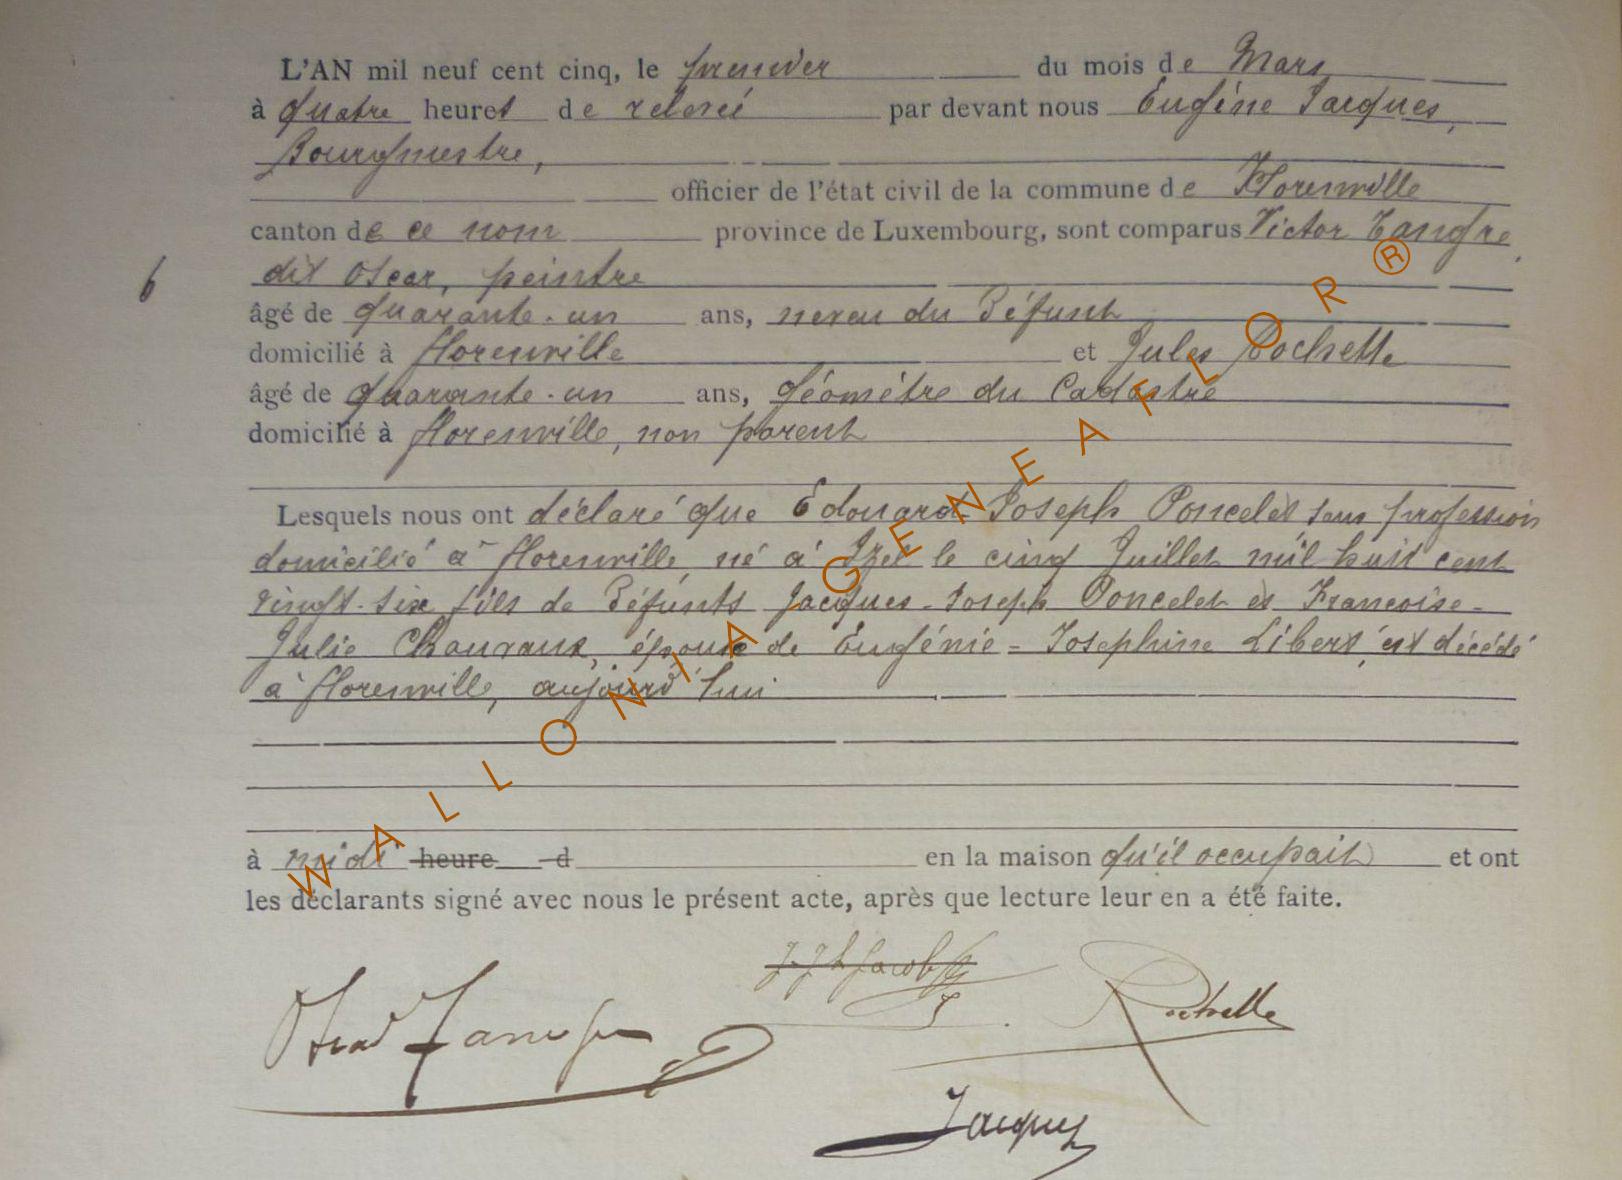 L'AN mil neuf cent cinq, le premier du mois de Mars
à quatre heures de relevé par devant nous Eugène Jacques,
Bourgmestre,
officier de l'état civil de la commune de Florenville
canton de ce nom province de Luxembourg, sont comparus Victor Tangre,
dit Oscar, peintre
6
âgé de quarante-un ans, neveu du Défunt
domicilié à florenville et Jules Rochette
âgé de quarante-un ans, Géomètre du Cadastre
domicilié à florenville, non parent
Lesquels nous ont déclaré que Edouard Joseph Poncelet sans profession
domicilié à florenville, né à Izel le cinq Juillet mil huit cent
vingt-six fils de Défunts Jacques-Joseph Poncelet et Françoise-
Julie Chauvaux, époux de Eugénie-Josephine Libert, est décédé
à florenville, aujourd'hui
à midi heure d en la maison qu'il occupait et ont
les déclarants signé avec nous le présent acte, après que lecture leur en a été faite.
Rochette
Jacques
WALLONIA GENEAFLOR ®